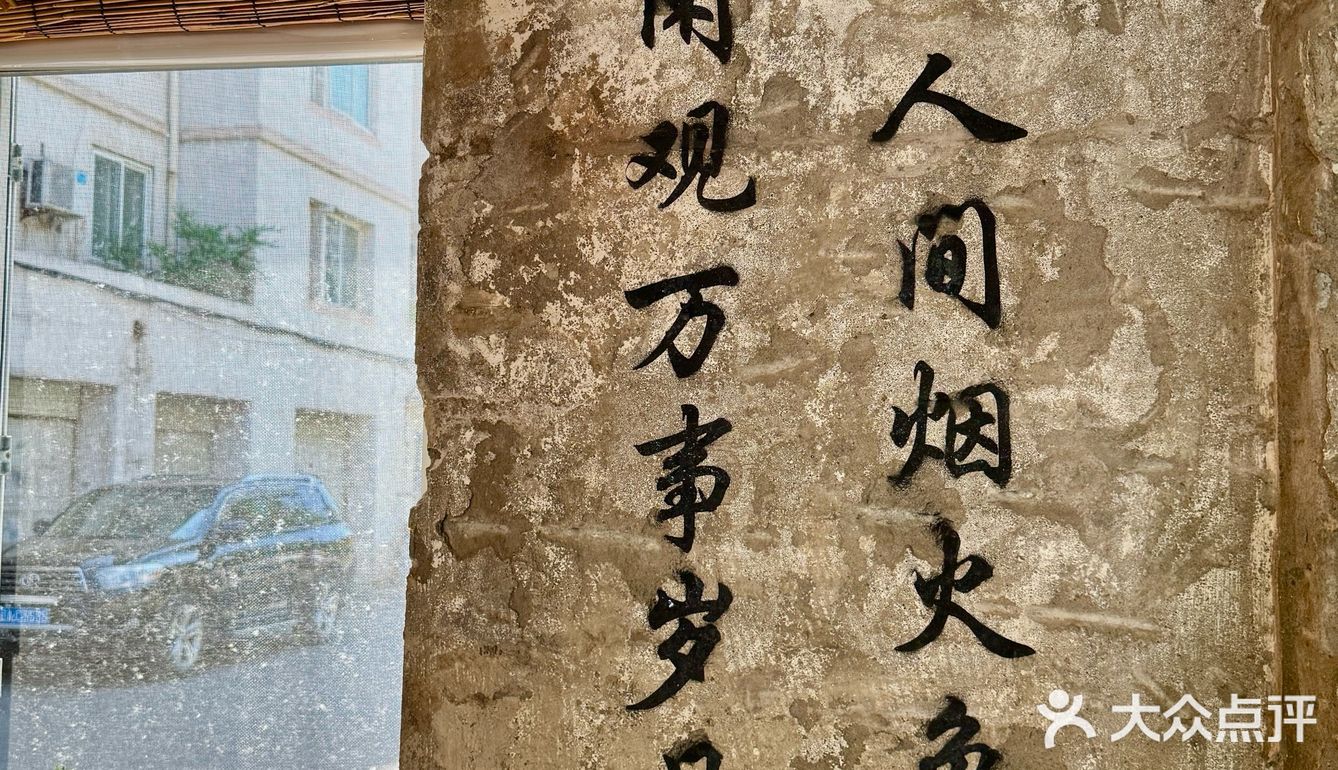 人间烟火
观万事岁
大众点评